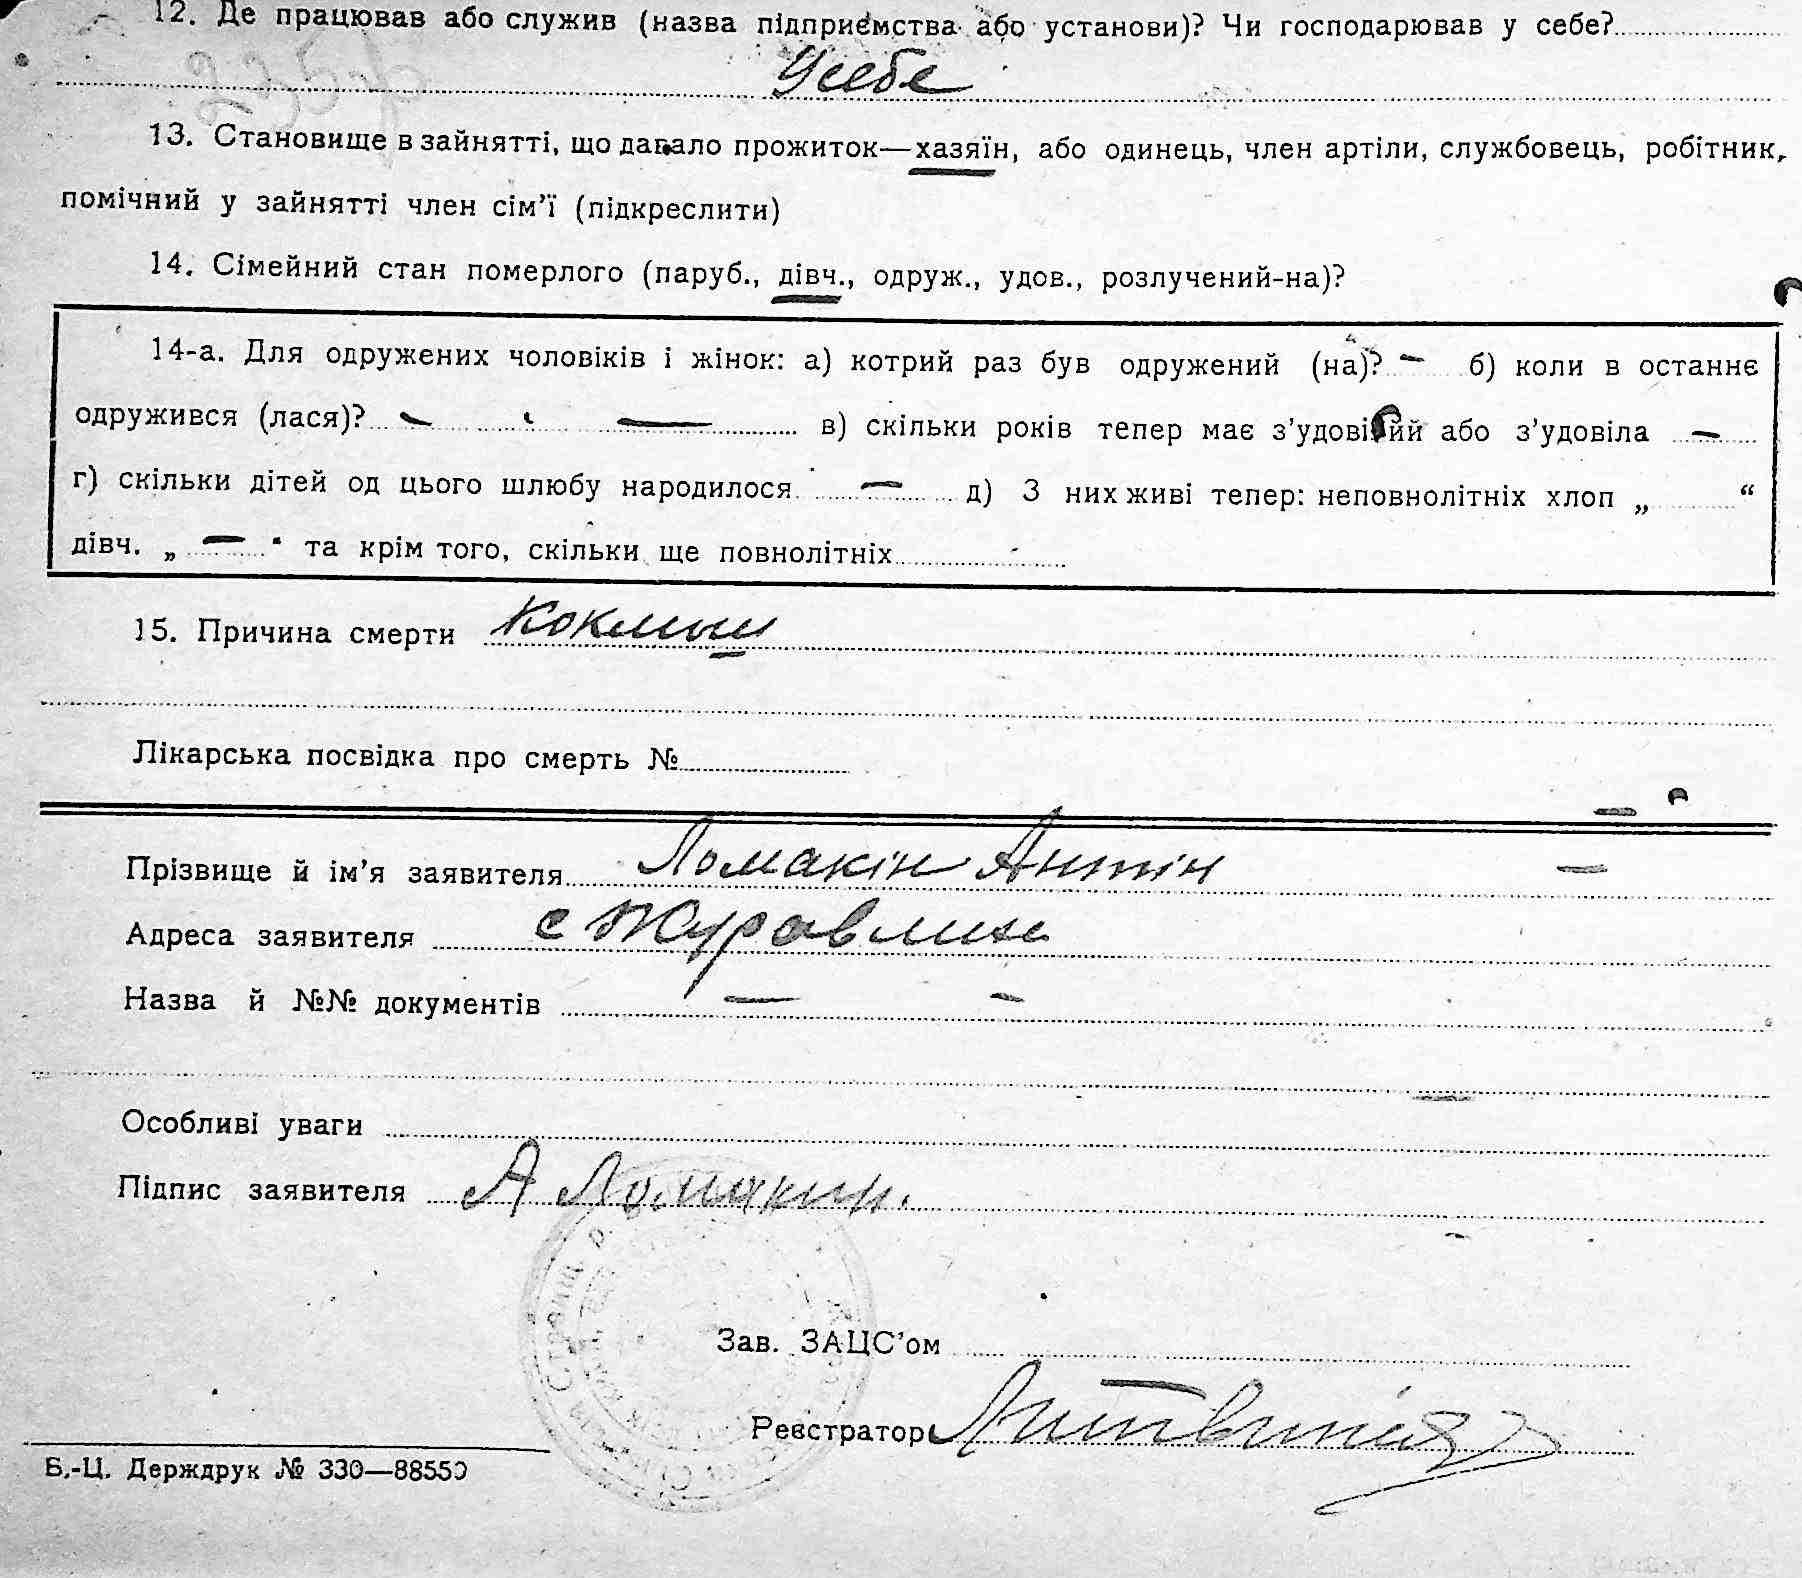 12. Де працював або служив (назва підприємства або установи)? Чи господарював у себе?
У себе
13. Становище в зайнятті, що давало прожиток—хазяїн, або одинець, член артіли, службовець, робітник,
помічний у зайнятті член сім’ї (підкреслити)
14. Сімейний стан померлого (паруб., дівч., одруж., удов., розлучений-на)?
14-а. Для одружених чоловіків і жінок: а) котрий раз був одружений (на)? — б) коли в останнє
одружився (лася)? — — в) скільки років тепер має з’удовілий або з’удовіла —
г) скільки дітей од цього шлюбу народилося — д) З них живі тепер: неповнолітніх хлоп „ “
дівч. „ — “ та крім того, скільки ще повнолітніх
15. Причина смерти Коклюш
Лікарська посвідка про смерть №
Прізвище й ім’я заявителя Ломакін Антін —
Адреса заявителя с Журавлине
Назва й №№ документів — —
Особливі уваги
Підпис заявителя А Ломакин.
Зав. ЗАЦС’ом
Реєстратор Литвинов
Б.-Ц. Держдрук № 330—88550